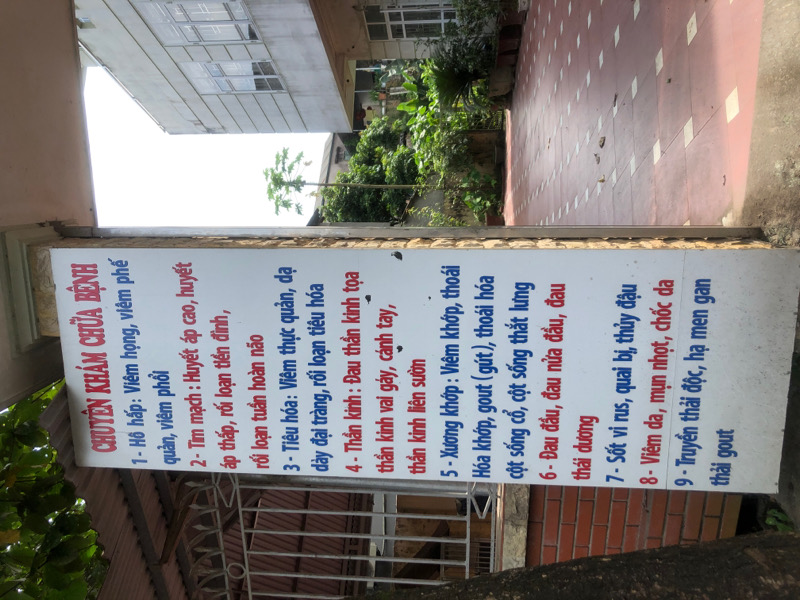 CHUYÊN KHÁM CHỮA BỆNH
1- Hô hấp: Viêm họng, viêm phế
quản, viêm phổi
2- Tim mạch: Huyết áp cao, huyết
áp thấp, rối loạn tiền đình,
rối loạn tuần hoàn não
3- Tiêu hóa: Viêm thực quản, dạ
dày đại tràng, rối loạn tiêu hóa
4- Thần kinh: Đau thần kinh tọa
thần kinh vai gáy, cánh tay,
thần kinh liên sườn
5- Xương khớp: Viêm khớp, thoái
Hóa khớp, gout (gút), thoái hóa
cột sống cổ, cột sống thắt lưng
6- Đau đầu, đau nửa đầu, đau
thái dương
7- Sốt vi rus, quai bị, thủy đậu
8- Viêm da, mụn nhọt, chốc da
9- Truyền thải độc, hạ men gan
thải gout